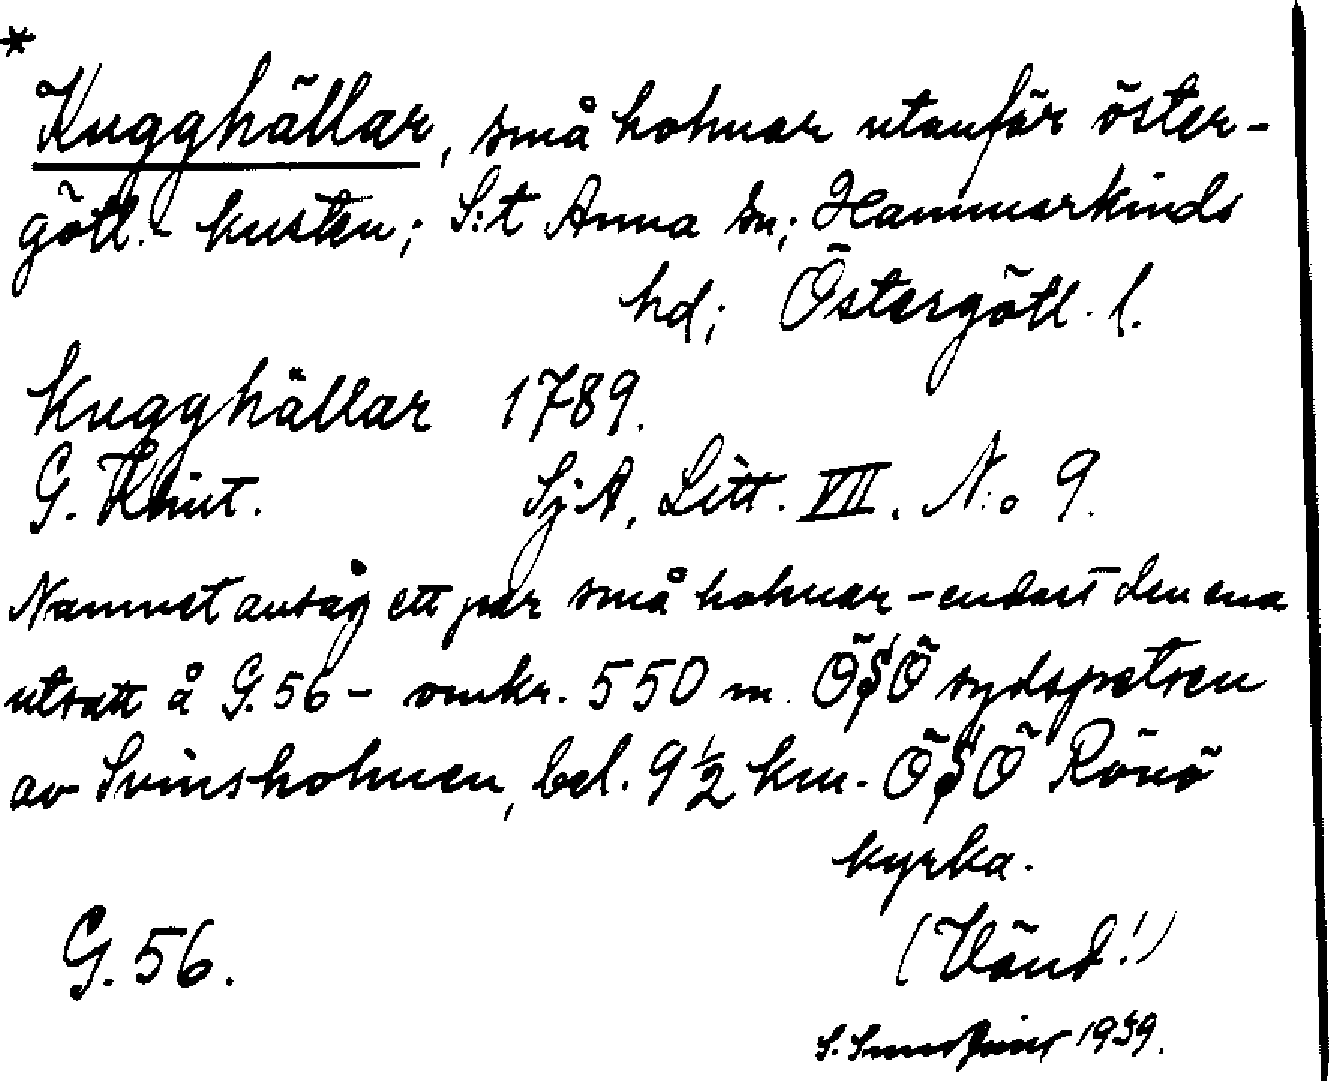 *
Kugghällar, små holmar utanför öster-
götl. kusten; S:t Anna sn; Hammarkinds
hd; Östergötl. l.
Kugghällar 1789.
G. Klint. SjA, Litt. VII. N:o 9.
Namnet avsåg ett par små holmar - endast den ena
utsatt å G.56 - omkr. 550 m. ÖSÖ sydspetsen
av Svinsholmen, bel. 9½ km. ÖSÖ Rönö
kyrka.
G.56. (Vänd!)
S. 1939.